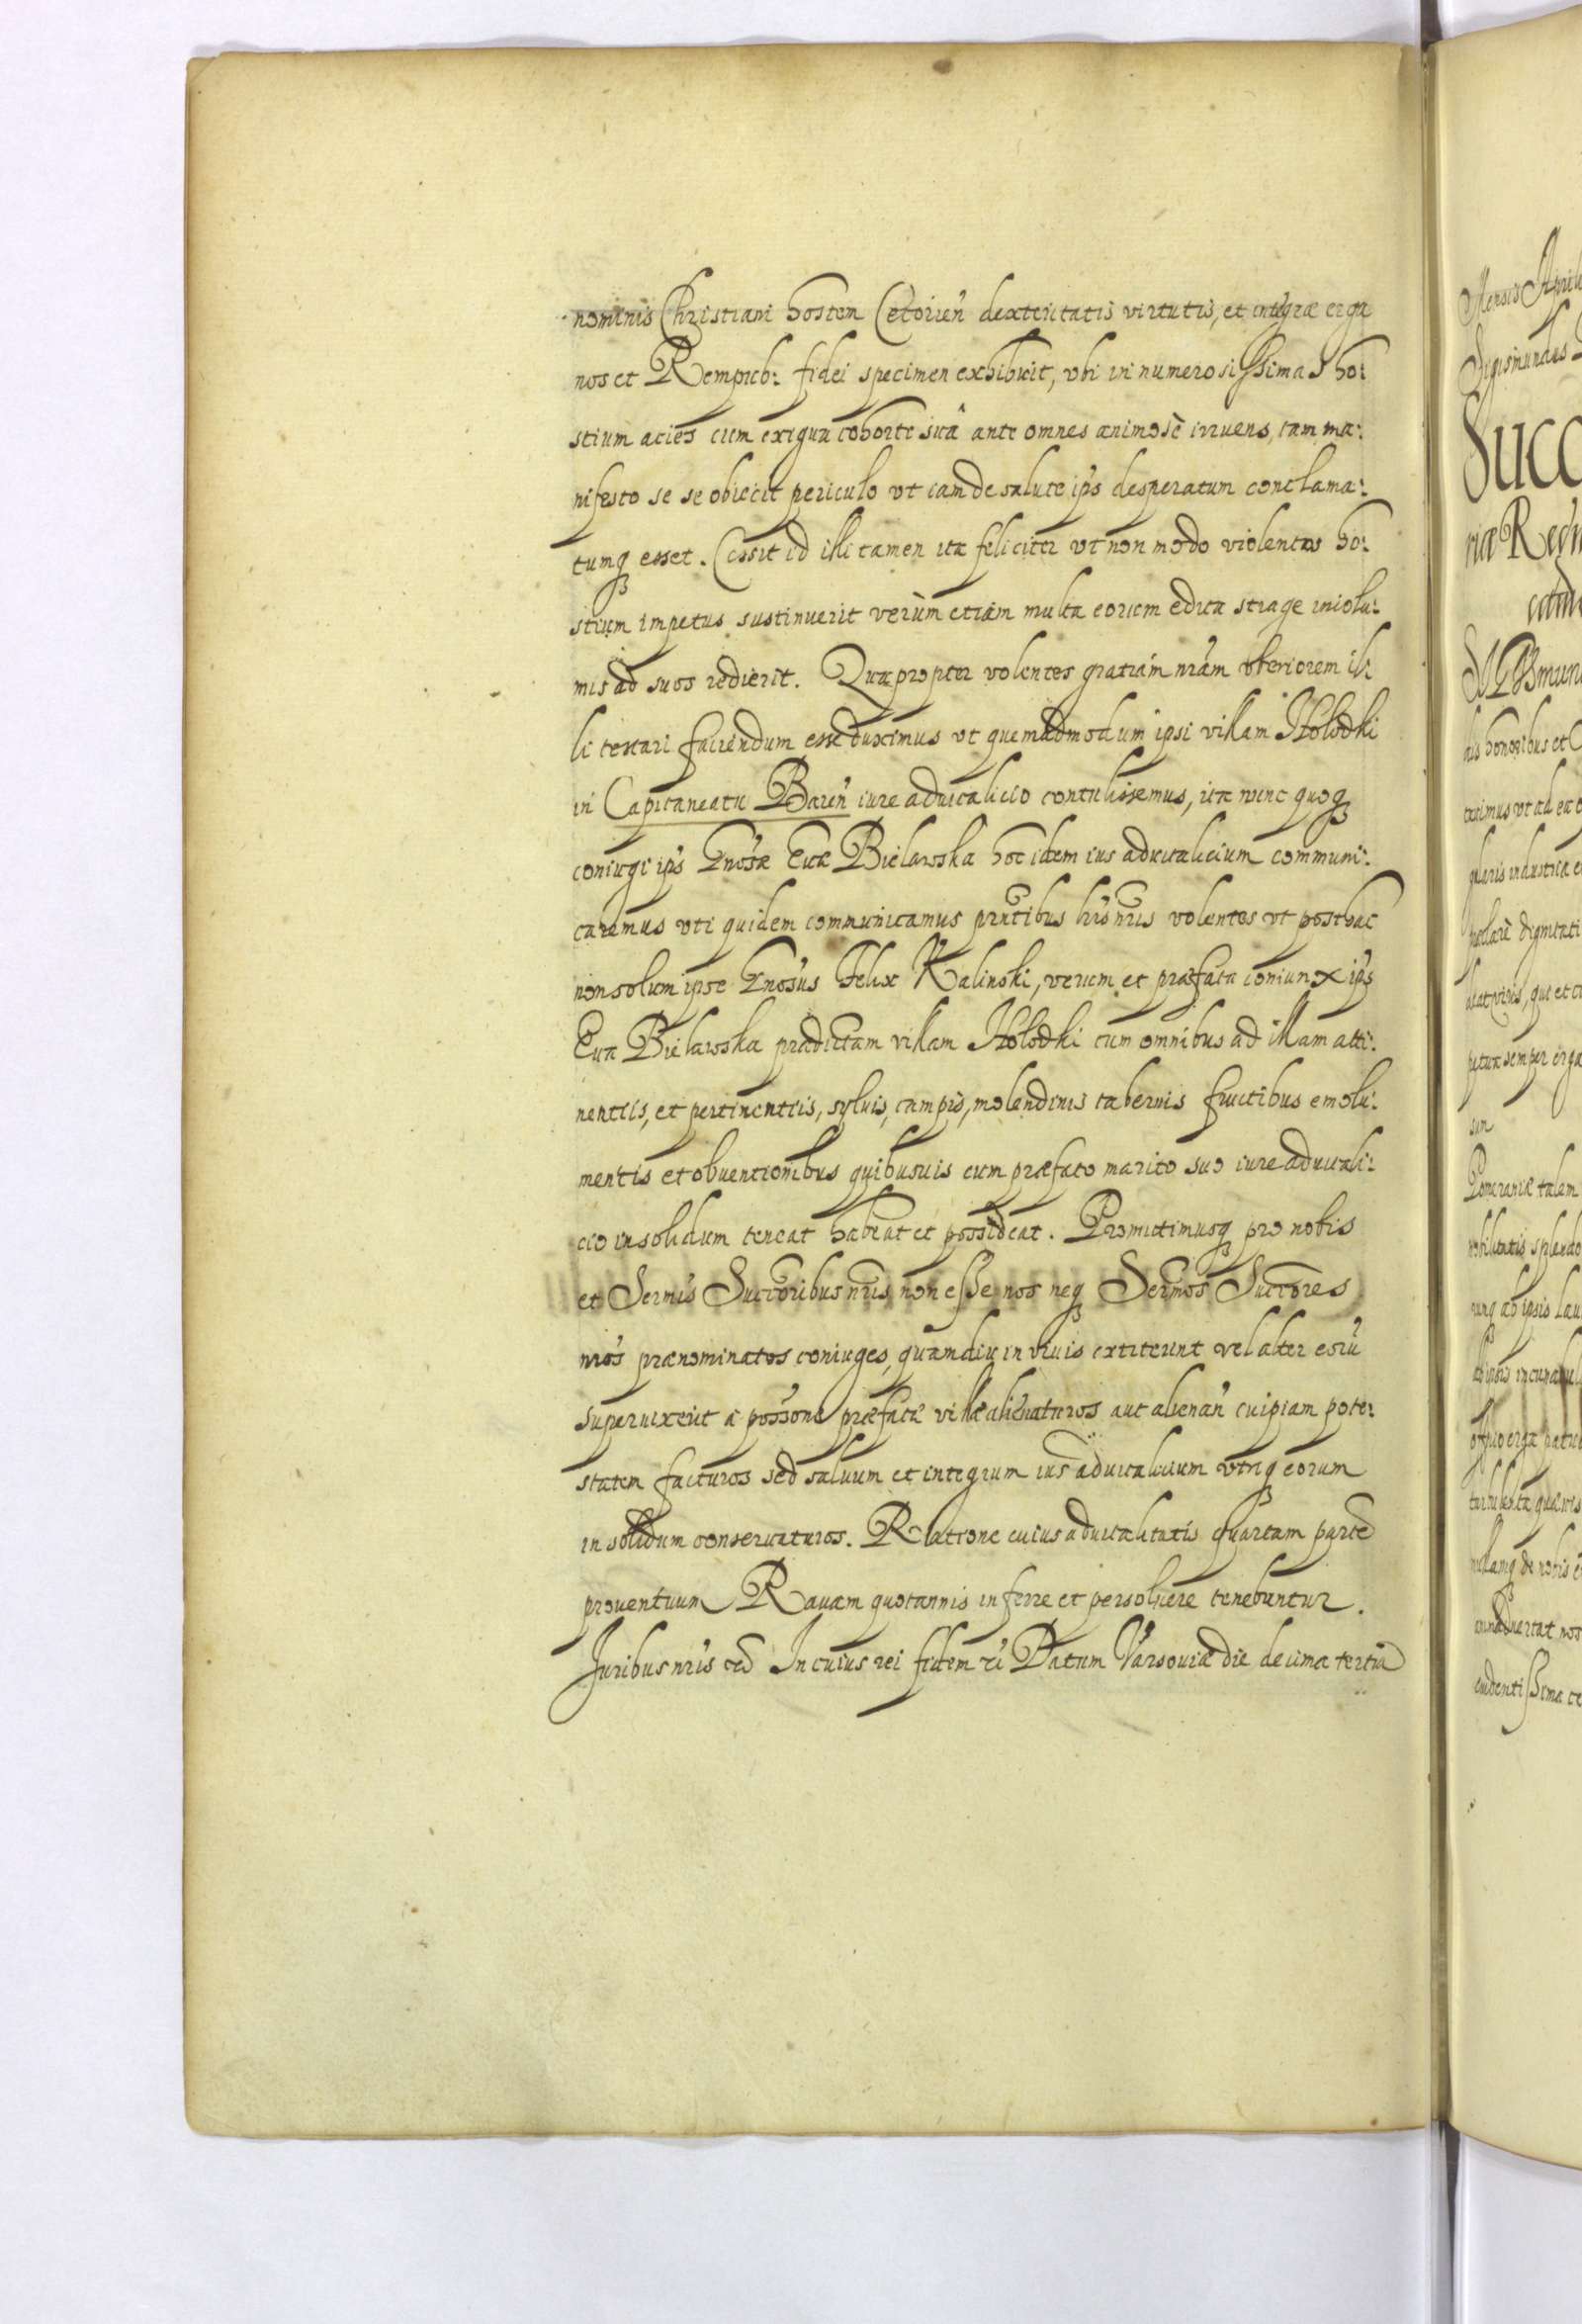 nominis Christiani hostem Cetorien̄ dexteritatis virtutis, et integræ erga
nos et Rempub: fidei specimen exhibuit, vbi in numerosissimas ho:
stium acies cum exigua cohorte suâ ante omnes animosè irruens, tam ma:
nifesto se se obiecit periculo vt iam de salute ip̄s desperatum conclama:
tumq̨ esset. Cessit id illi tamen ita feliciter vt non modo violentos ho:
stium impetus sustinuerit verùm etiam multa eorum edita strage incolu:
mis ad suos redierit. Quapropter volentes gratiam nr̄am vlteriorem il:
li testari faciendum esse duximus vt quemadmodum ipsi villam Hołodki
in Capitaneatu Baren̄ iure aduitalicio contulissemus, ita nunc quoq̨
coniugi ip̄s Gnosæ Euæ Bielawska hoc idem ius aduitalicium communi:
caremus vti quidem communicamus pr̄ntibus lr̄is nr̄is volentes vt posthac
non solum ipse Gnosus Felix Kalinski, verum et præfata coniunx ip̄s
Eua Bielawska prædictam villam Hołodki cum omnibus ad illam atti:
nentiis, et pertinentiis, syluis, campis, molendinis tabernis fructibus emolu:
mentis et obuentionibus quibusuis cum præfato marito suo iure aduitali:
cio in solidum teneat habeat et possideat. Promittimusq̨ pro nobis
et Sermis Suctoribus nr̄is non esse nos neq̨ Sermos Suctores
nr̄os prænominatos coniuges, quamdiu in viuis extiterint vel alter eorū
superuixerit a possone præfatæ villæ alienaturos aut alienan̄ cuipiam pote:
statem facturos sed saluum et integrum ius aduitalicium vtriq̨ eorum
in solidum conseruaturos. Ratione cuius aduitalitatis quartam partē
prouentuum Rauam quotannis inferre et persoluere tenebuntur.
Juribus nr̄is etc̄ In cuius rei fidem Datum Varsouiæ die decima tertia